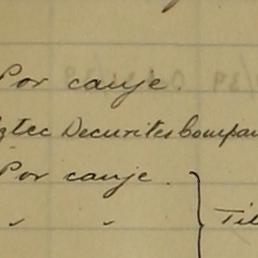 Por canje.
Aztec Securites Compan
Por canje.
" "
Til